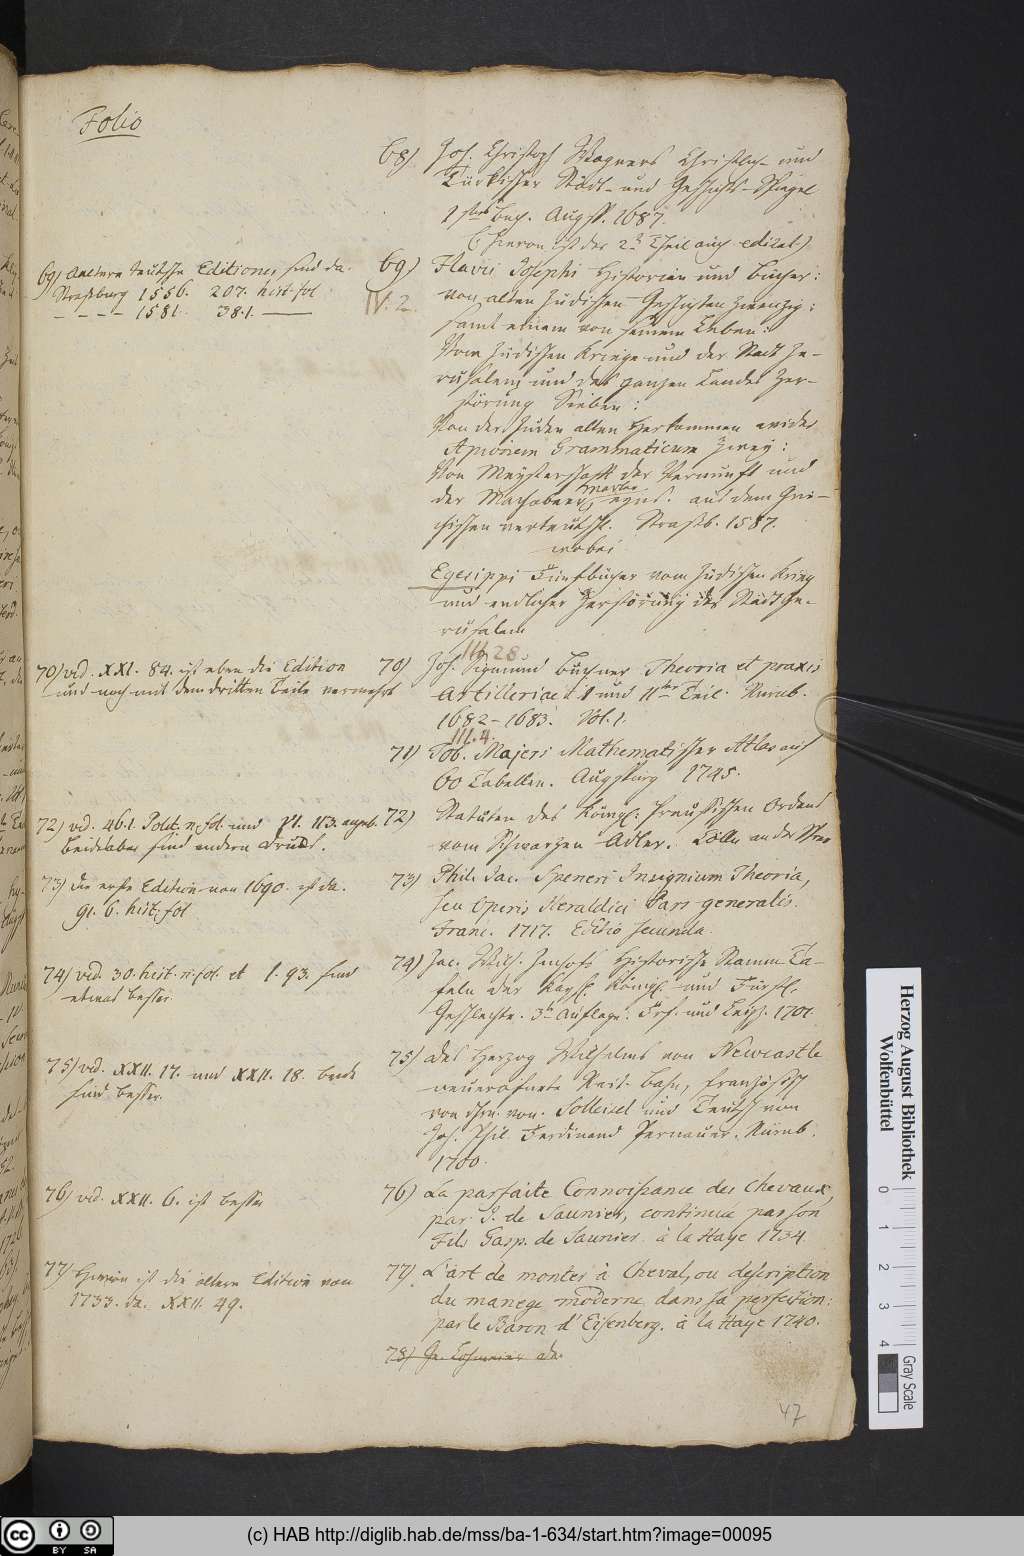 Folio
68) Joh. Christoph Wagners Christlich- und
Türckischer Städt- und Geschicht-Spiegel
1ster Buch. Augsp. 1687.
(hievon ist der 2te Theil auch edirt)
69) Aeltere teutsche Editiones sind da.
Strasburg 1556. 207. hist. fol
- - - - 1581. 38.1. ———
69) Flavii Josephi Historien und Bücher:
IV. 2.
von alten Jüdischen Geschichten zwenzig:
samt einem von seinem Leben:
Vom Jüdischen Kriege und der Stadt Je-
rusalem und des ganzen Landes Zer-
störung Sieben:
Von der Juden alten Herkommen wider
Apionem Grammaticum Zwey:
Von Meysterschafft der Vernunfft und
der Machabeer Marter eyns. aus dem Gri-
chischen verteutscht. Strasb. 1587.
wobei
Egesippi Fünf bücher vom Jüdischen Krieg
und endlicher Zerstörung der Stadt Je-
rusalem
III 28.
70) vid. XXI. 84. ist eben die Edition
und noch mit dem dritten Teile vermehrt
70) Joh. Sigmund Buchner Theoria et praxis
Artilleriae I und IIter Teil. Nurnb.
1682-1683. Vol. 1.
III. 4.
71) Tob. Majeri Mathematischer Atlas auf
60 Tabellen. Augspurg 1745.
72) vid. 46.1. Polit. n. fol. und Pl. 113.
beidelebes sind andern Drucks.
72) Statuten des Königl. Preussischen Ordens
vom Schwarzen Adler. Cölln an der Spree
73) die erste Edition von 1690. ist da.
91. 6. hist. fol
73) Phil. Jac. Speneri Insignium Theoria,
seu Operis Heraldici Pars generalis.
Franc. 1717. Editio secunda.
74) vid. 30. hist. n. fol. et 1. 93. sind
etwas besser.
74) Jac. Wilh. Imhofs Historische Stamm Ta-
feln der Kaysl. Königl. und Fürstl.
Geschlechte. 3te Auflage. Frf. und Leipz. 1701.
75) vid. XXII. 17. und XXII. 18. beide
sind besser.
75) des Herzog Wilhelms von Newcastle
neueröfnete Reit-bahn, französisch
von Hrn. von Solleisel und Teutsch von
Joh. Phil. Ferdinand Pernauer. Nürnb.
1700.
76) vid. XXII. 6. ist besser
76) La parfaite Connoissance des Chevaux,
par J. de Saunier, continuee par son
Fils Gasp. de Saunier. à la Haye 1734
77) Hievon ist die ältere Edition von
1733. da. XXII. 49.
77) L'art de monter à Cheval, ou description
du manege moderne dans sa perfection:
par le Baron d'Eisenberg. à la Haye 1740.
78)
47
Herzog August Bibliothek
Wolfenbüttel
0 1 2 3 4
Gray Scale
cc BY SA
(c) HAB http://diglib.hab.de/mss/ba-1-634/start.htm?image=00095